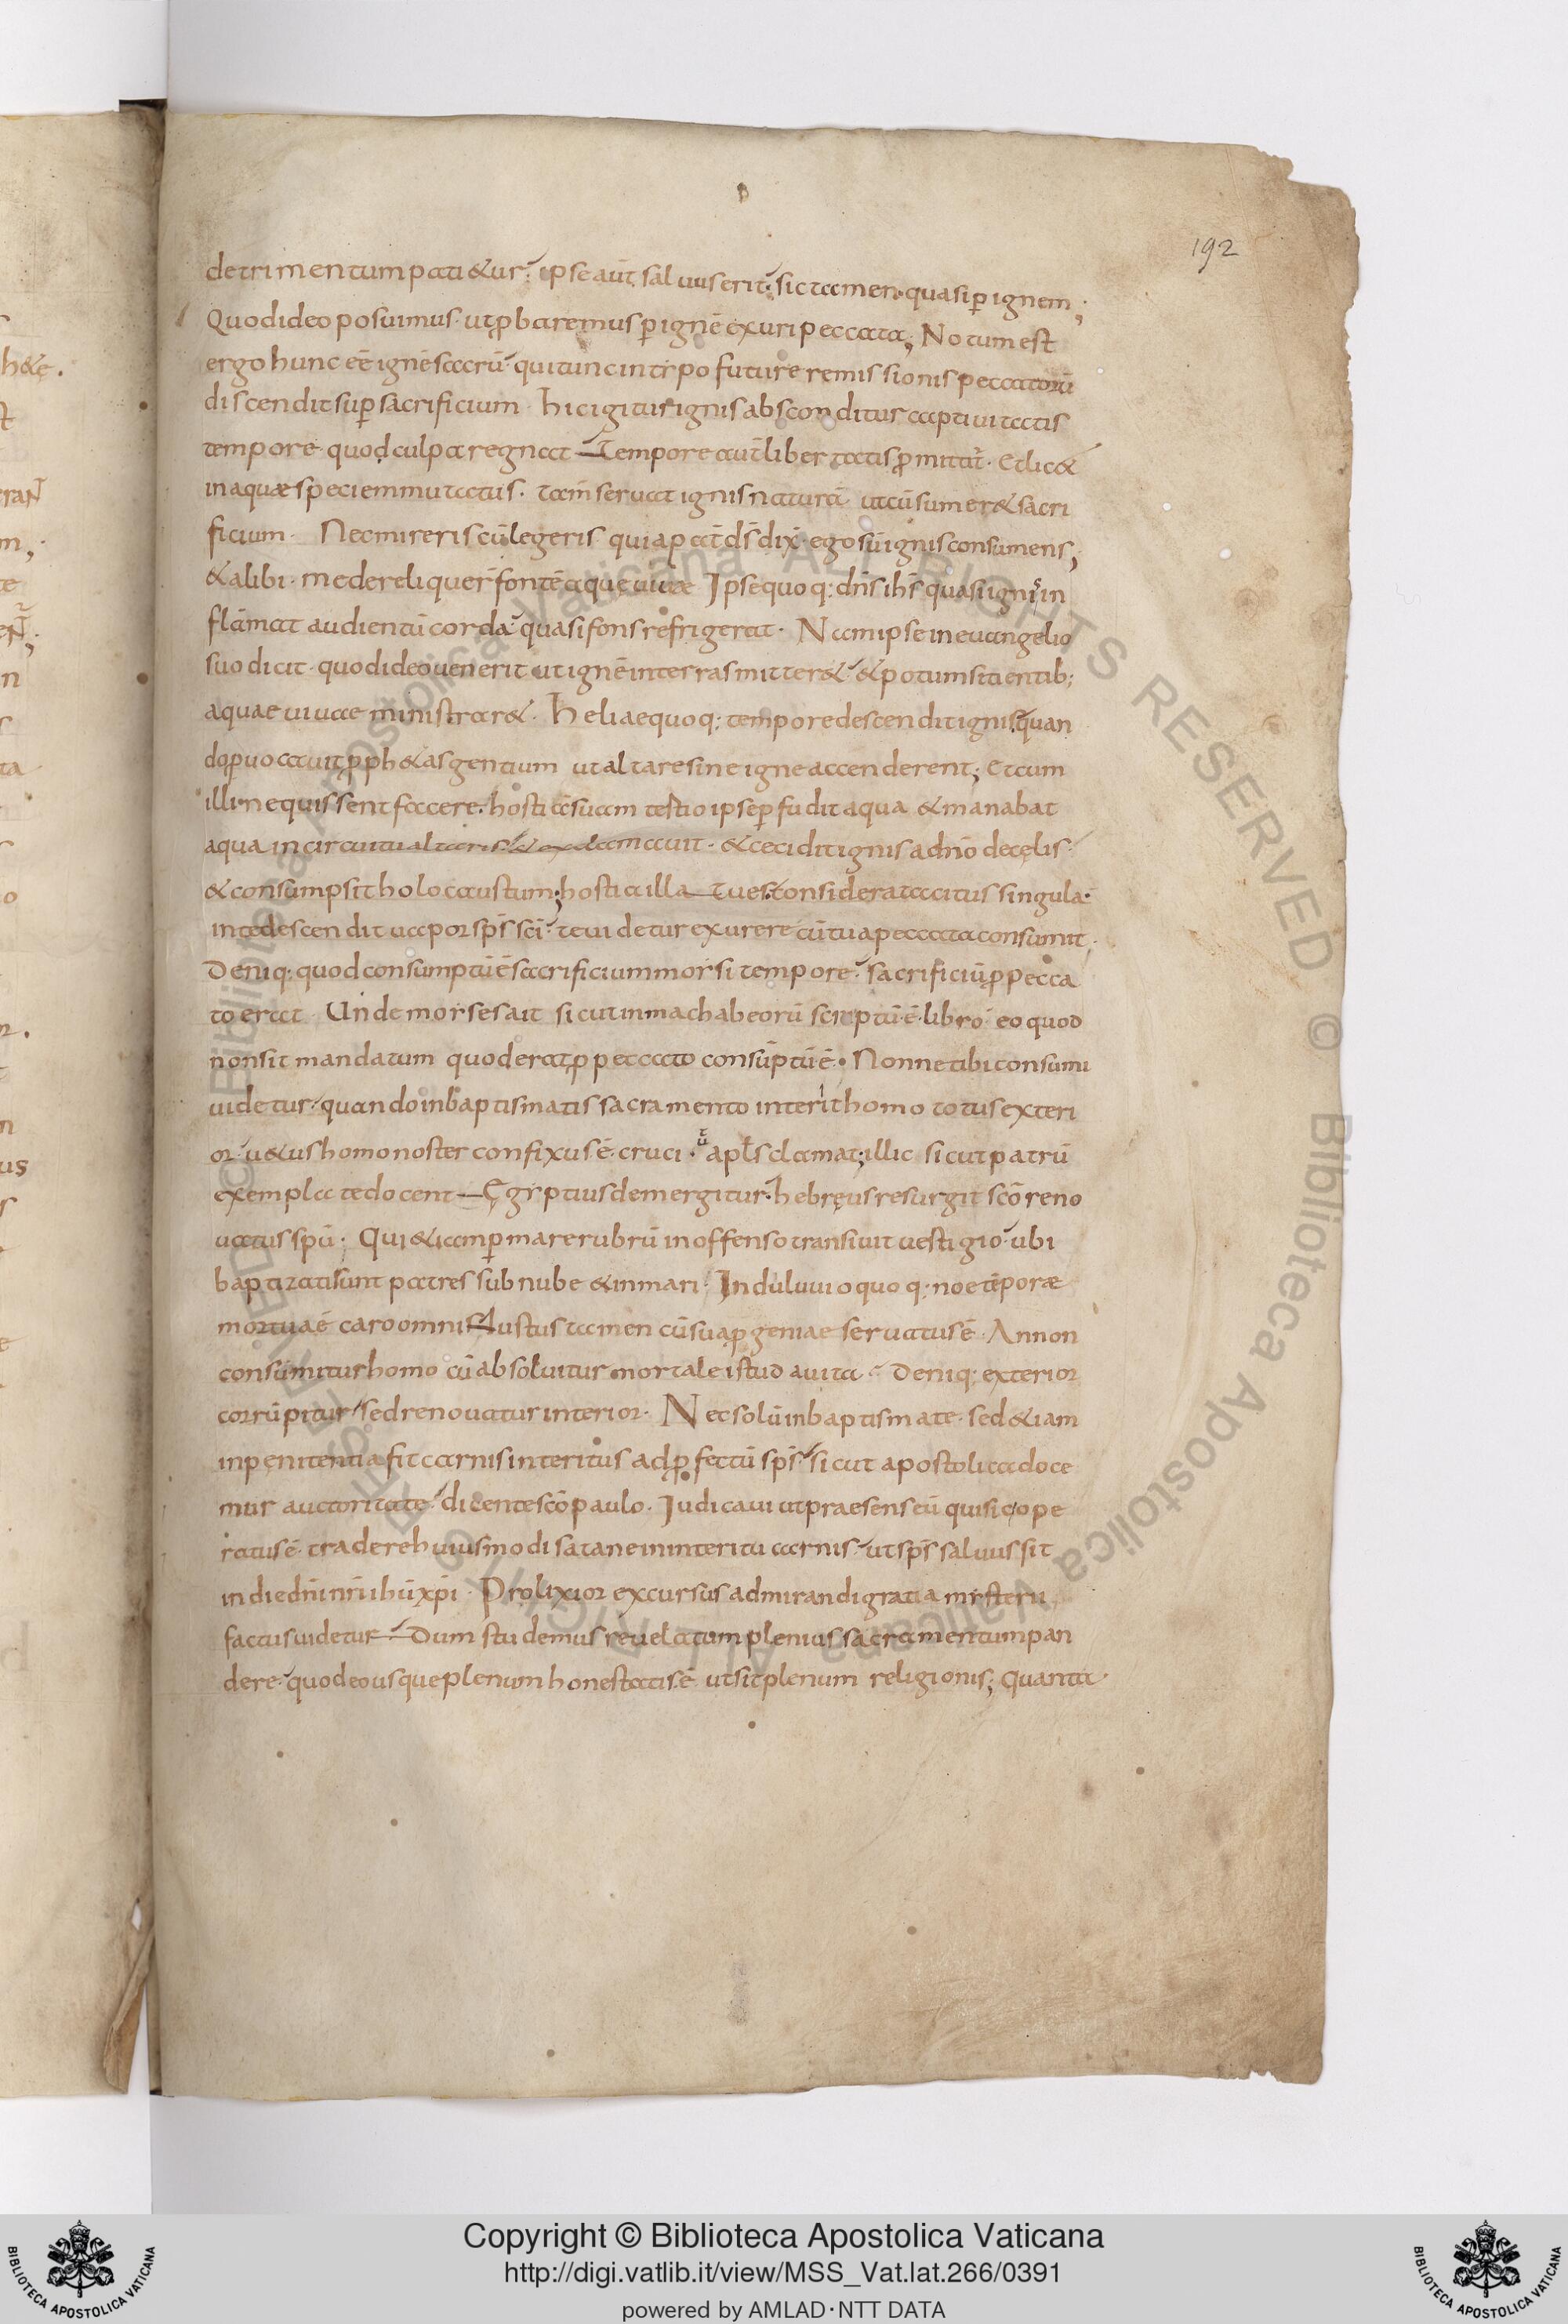 192
detrimentum pati&ur; ipse aut̄ saluus erit; sic tamen quasi ꝑ ignem;
Quod ideo posuimus ut ꝓbaremus ꝑ ignē exuri peccata; Notum est
ergo hunc eē ignē sacrū qui tunc in tẏpo future remissionis peccatorū
discendit suꝑ sacrificium. hic igitur ignis absconditus captiuitatis
tempore quod culpa regnat. Tempore aut̄ libertatis ꝓmitat̄. Et lic&
in aquae speciem mutatus. tam̄ seruat ignis naturā ut cū sumer& sacri
ficium. Nec mireris cū legeris quia pat̄ d̄s dix̄. ego sū ignis consumens;
& alibi. me dereliquer̄ fontē aque uiuae Ipse quoq: dn̄s ih̄s quasi ignis in
flāmat audientū corda quasi fons refrigerat. Nam ipse in euangelio
suo dicit. quod ideo uenerit ut ignē in terras mitter& & potum sitientib;
aquae uiuae ministrar&. heliae quoq: tempore descendit ignis quan
do ꝓuocauit ꝓph&as gentium ut altare sine igne accenderent; Et cum
illi nequissent facere. hostiā suam testio ipse ꝑfudit aqua & manabat
aqua in circuitu altaris & exclamauit. & cecidit ignis a dn̄o de cęlis.
& consumpsit holocaustum; hostia illa tu es. considera tacitus singula.
in te descendit uapor sps̄ sc̄i. te uidetur exurere cū tua peccata consumit.
Deniq: quod consumptū ē sacrificium morsi tempore. sacrificiū ꝓ pecca
to erat. Unde morses ait sicut in machabeorū scriptū ē. libro eo quod
non sit mandatum quod erat ꝓ peccato consūptū ē. Nonne tibi consumi
uidetur quando in baptismatis sacramento interit homo totus exteri
or. u&us homo noster confixus ē. cruci. apl̄s clamat; illic sicut patrū
exempla te docent Ęgẏptius demergitur. hebręus resurgit sc̄o reno
uatus spū. Qui &iam ꝑ mare rubrū inoffenso transiuit uestigio ubi
baptizati sunt patres sub nube & in mari. In diluuio quoq: noe tēporæ
mortua ē caro omnis iustus tamen cū sua ꝓgeniae seruatus ē. Annon
consūmitur homo cū absoluitur mortale istud a uita. Deniq: exterior
corrūpitur sed renouatur interior. Nec solū in baptismate. sed &iam
in pęnitentia fit carnis interitus ad ꝓfectū sps̄. sicut apostolica doce
mur auctoritate. dicente sc̄o paulo. Iudicaui ut praesens eū qui sic ope
ratus ē. tradere huiusmodi satane in interitu carnis. ut sps̄ saluus sit
in die dn̄i nr̄i ihū xp̄i. Prolixior excursus admirandi gratia mẏsterii
factus uidetur Dum studemus reuelatum plenius sacramentum pan
dere. quod eo usque plenum honestatis ē ut sit plenum religionis; Quanta
Copyright © Biblioteca Apostolica Vaticana
http://digi.vatlib.it/view/MSS_Vat.lat.266/0391
powered by AMLAD·NTT DATA